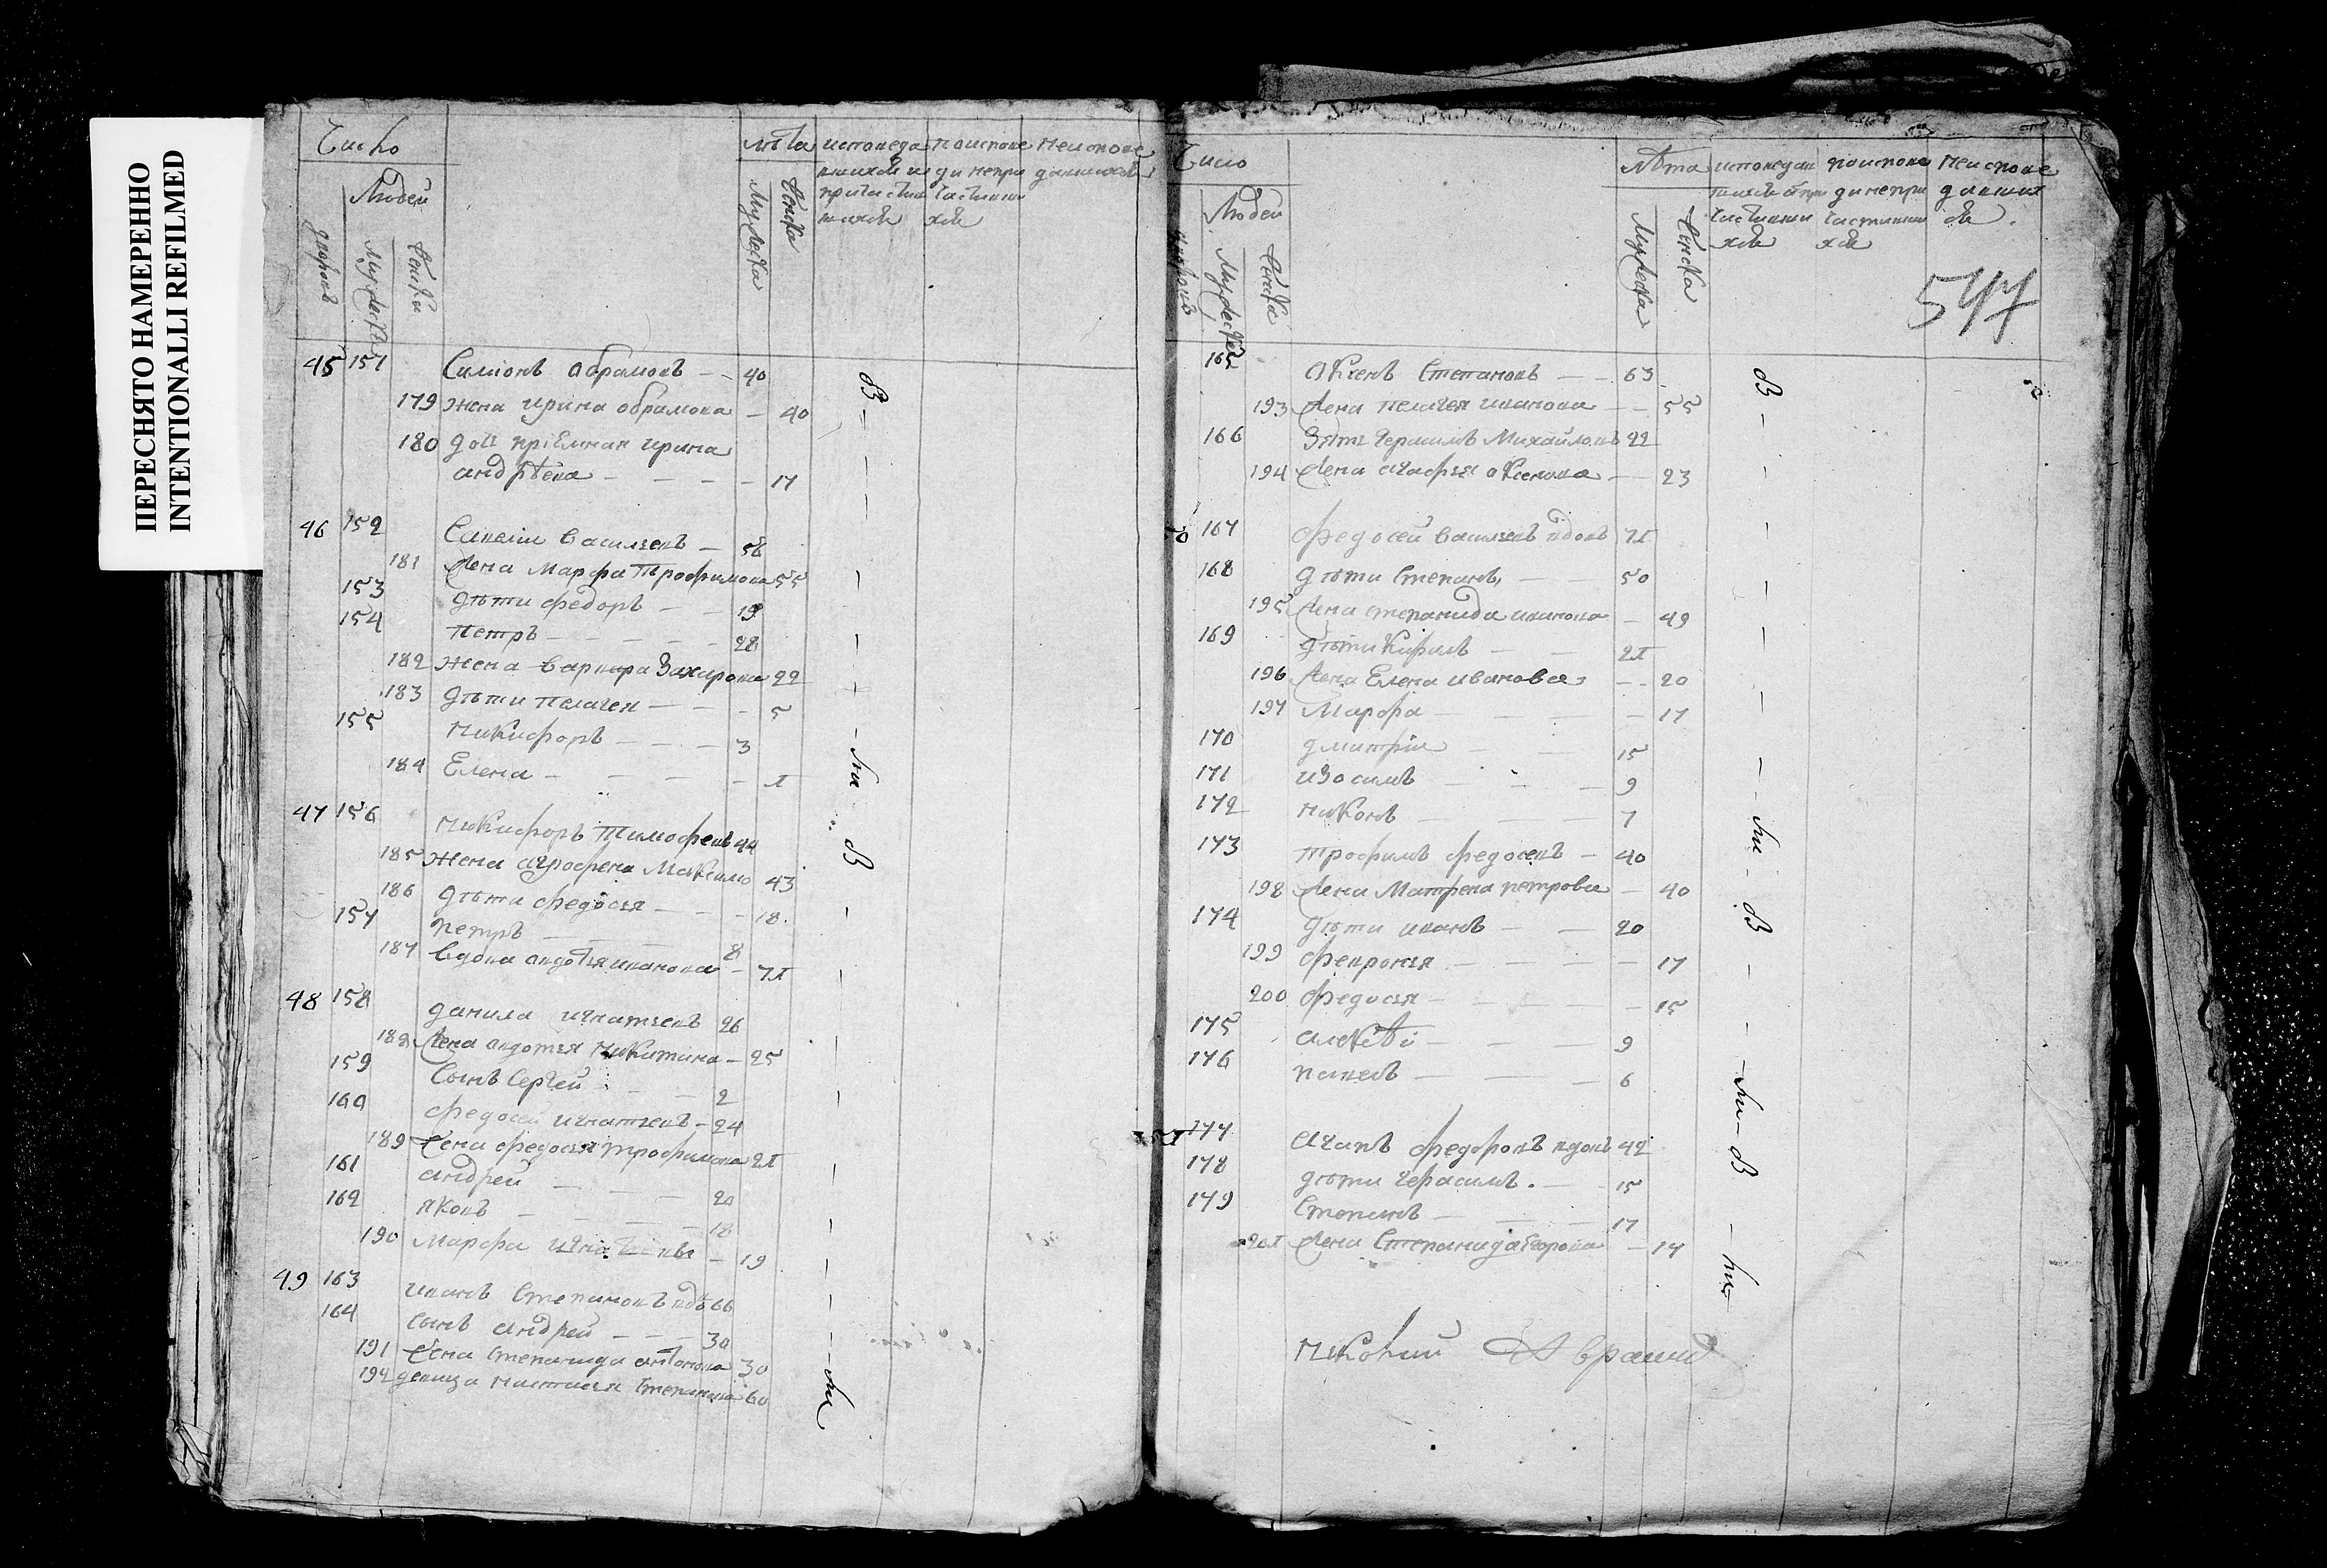 ПЕРЕСНЯТО НАМЕРЕННО
INTENTIONALLI REFILMED
Число
Людей
дворовъ
Мужеска
Женска
лѣта
Мужеска
Женска
45 151 Симіонъ Абрамовъ — 40
179 жена Ирина Обрамова — 40
180 доч пріемная Ирина
андрѣева — — — 17
46 152 Савелии Васильевъ — 56
181 Жена Марфа Трофимова 55
153 дѣти Федоръ — — 19
154 петръ — — — 28
182 жена Варвара Захарова 22
183 дѣти пелагея — — — 5
155 Никифоръ — — — 3
184 Елена — — — — 1
47 156 Никифоръ Тимофеевъ 44
185 жена аграфена Максимо 43
186 дѣти федосья — — — 18
157 петръ — 8
187 вдова авдотья иванова — 71
48 158 данила игнатьевъ 26
188 Жена авдотья Никитина — 25
159 Сынъ Сергей — — 2
160 федосей игнатьевъ — 24
189 Жена федосья трофимова 21
161 андрей — — — 20
162 яковъ — — — 18
190 марфа игнатьева — 19
49 163 иванъ Степановъ вдо 66
164 сынъ андрей — — — 30
191 Жена степанида антонова 30
192 девица настасья Степанова 60
Число
Людей
дворовъ
Мужеска
Женска
лѣта
Мужеска
Женска
исповедав
поиспове
неиспове
547
165 Аксенъ Степановъ — — 63
193 Жена пелагея иванова — — 55
166 Зять Герасимъ Михайловъ 22
194 Жена агафья аксенова — — 23
50 167 федосей васильевъ вдовъ 71
168 дѣти Степанъ — — 50
195 Жена степанида иванова — 49
169 дѣти Кирилъ — — 21
196 Жена Елена ивановa — — 20
197 Марфа — — — — 17
170 дмитріи — — 15
171 изосимъ — — — 9
172 никонъ — — — 7
173 трофимъ федосевъ — 40
198 Жена Матрена петрова — 40
174 дѣти иванъ — — 20
199 февронья — — — — 17
200 федосья — — — — 15
175 алексѣі — — — 9
176 павелъ — — — 6
51 177 Агапъ федоровъ вдовъ 42
178 дѣти герасимъ — — 15
179 Степанъ — — — 17
201 Жена Степанида Егорова — 17